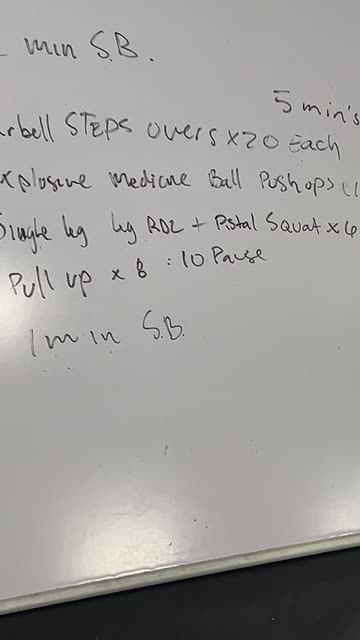 min S.B.
5 min's
rbell STEPS overs x20 Each
xplosive medicine Ball Pushops
Single leg leg RDL + Pistal Squat x6
Pull up x 8 :10 Pause
1 min S.B.